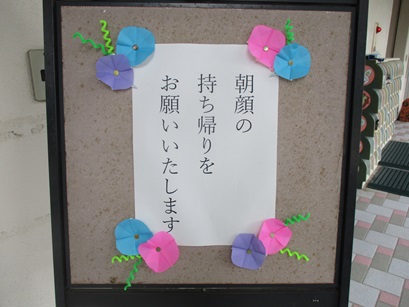 朝顔の
持ち帰りを
お願いいたします